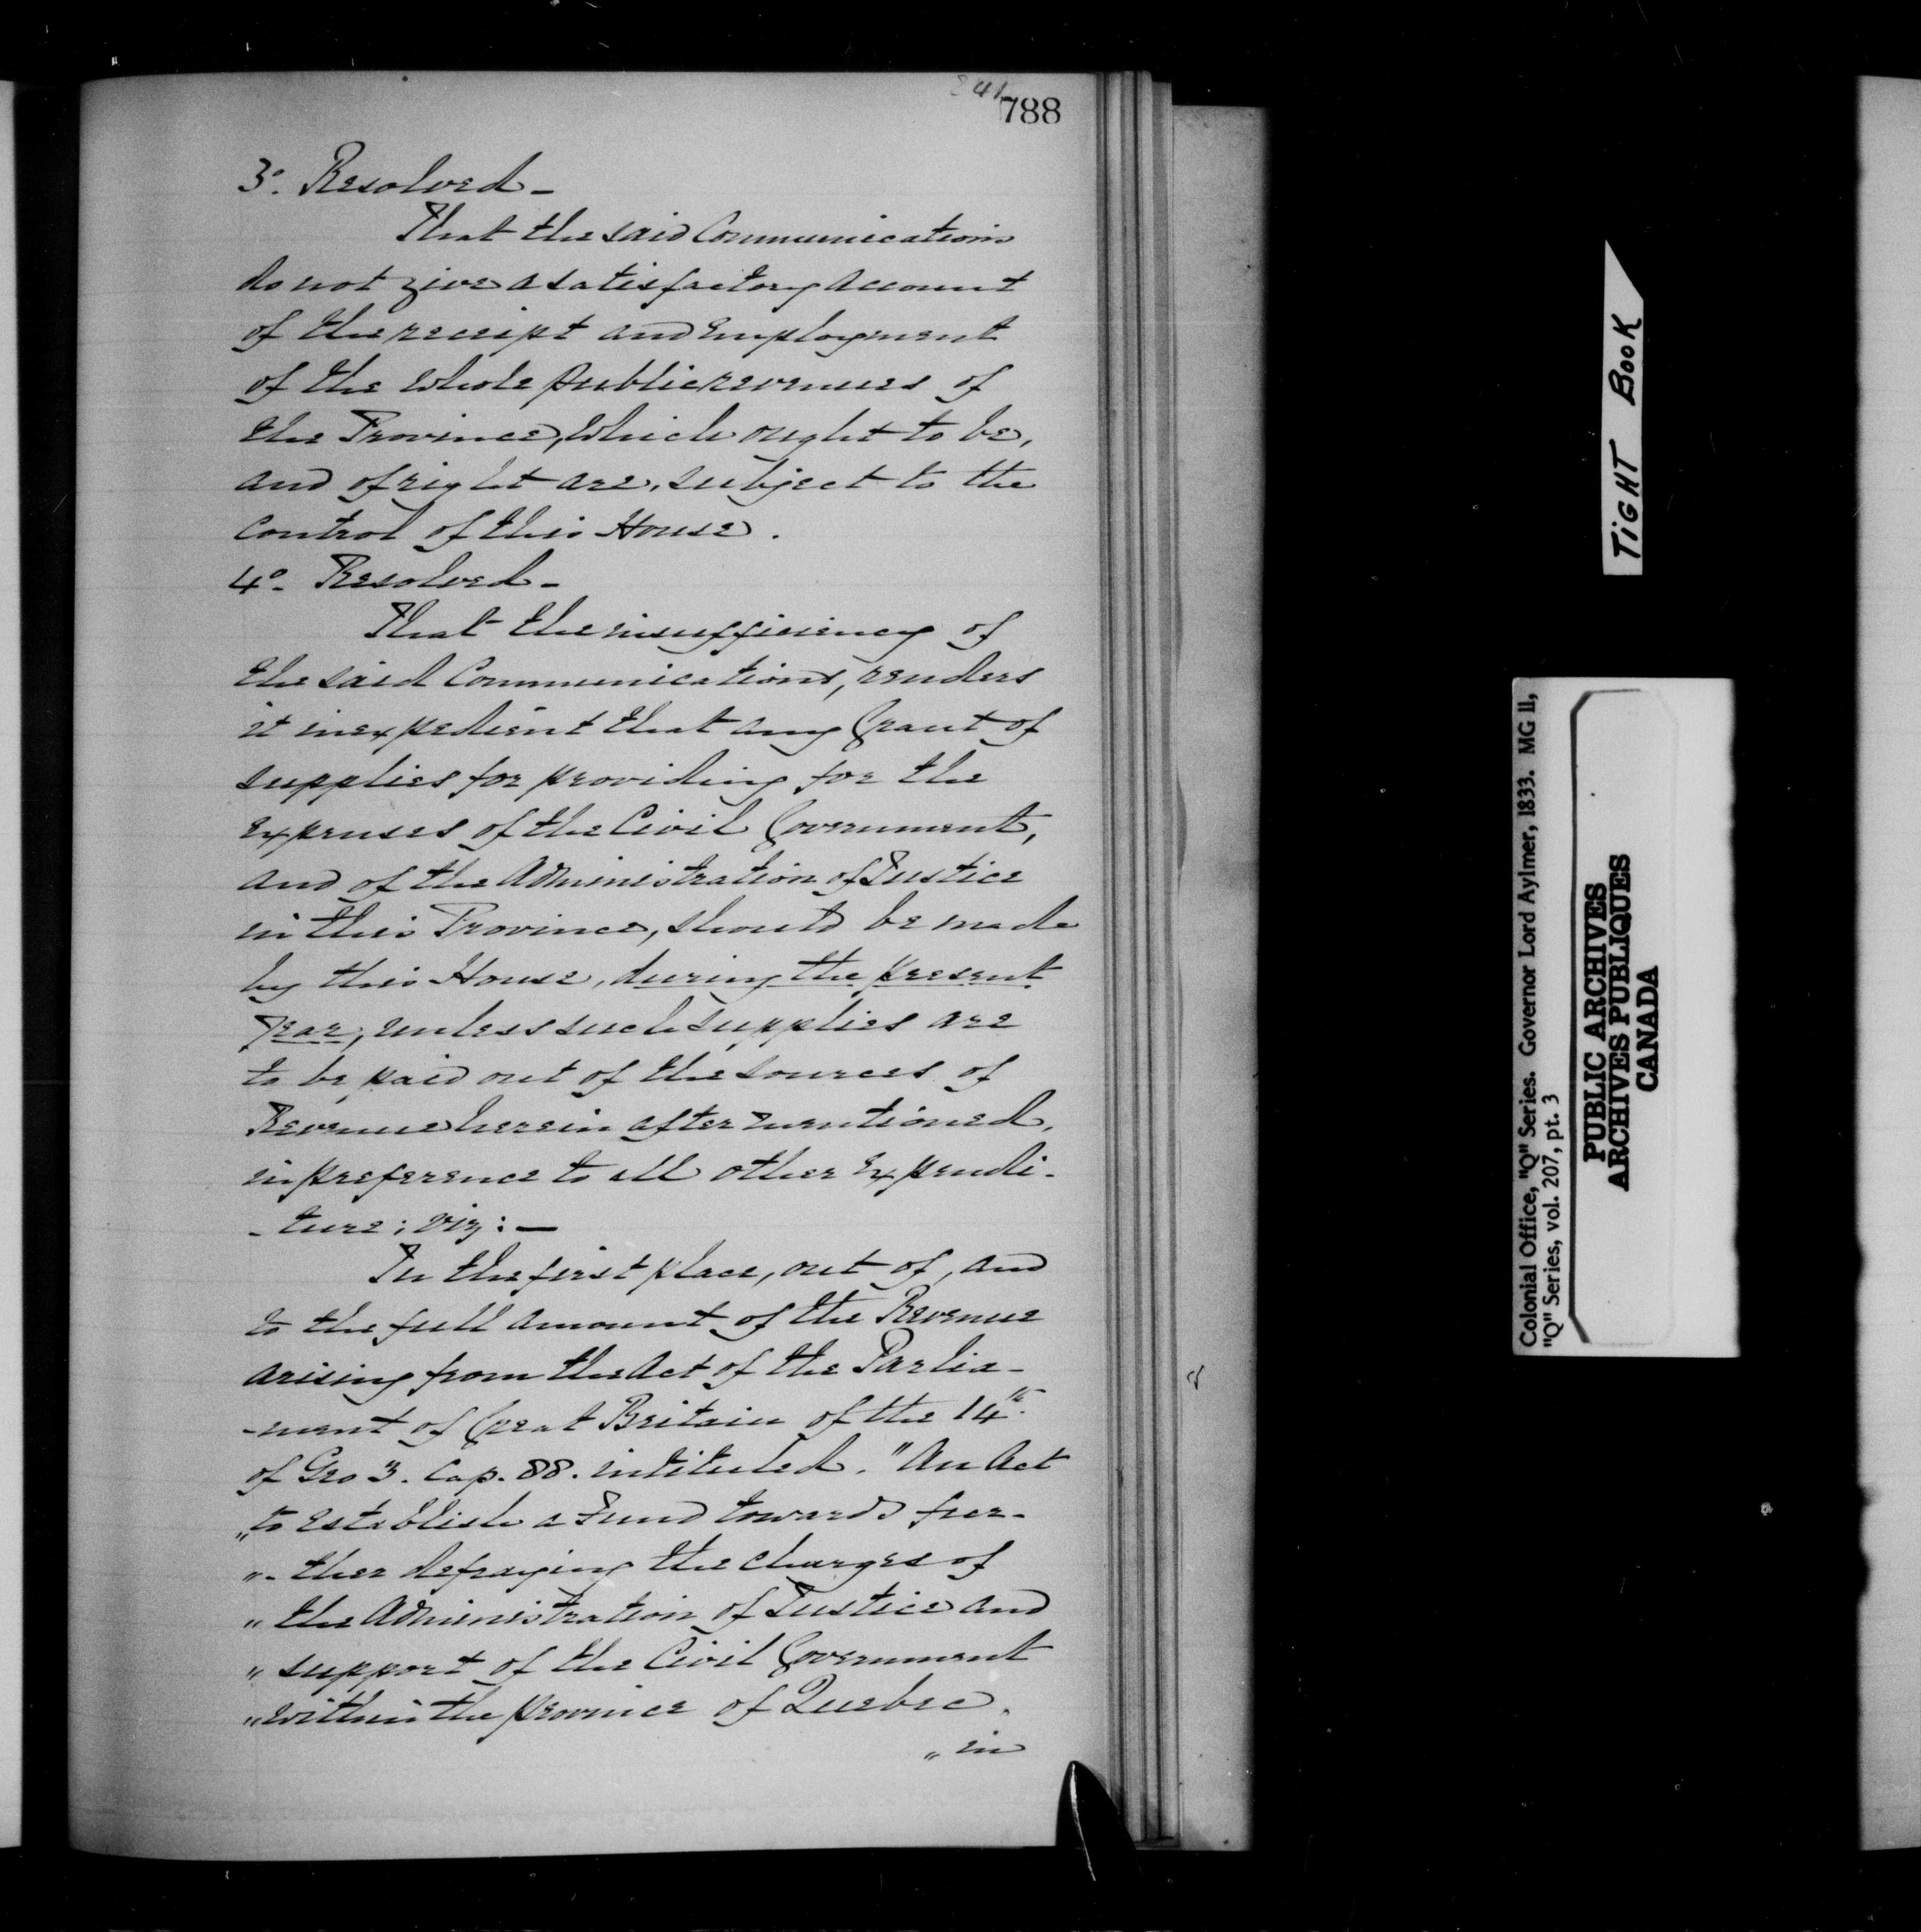 241
788
3º. Resolved –
That the said Communications
do not give a satisfactory account
of the receipt and employment
of the whole public revenues of
the Province, which ought to be,
and of right are, subject to the
control of this House.
4º. Resolved –
That the insufficiency of
the said Communications, renders
it inexpedient that any Grant of
supplies for providing for the
expenses of the Civil Government,
and of the Administration of Justice
in this Province, should be made
by this House, during the present
year, unless such supplies are
to be paid out of the sources of
Revenue herein after mentioned,
in preference to all other Expendi-
-ture; viz: —
In the first place, out of, and
to the full amount of the Revenue
arising from the Act of the Parlia-
-ment of Great Britain of the 14th.
of Geo 3. Cap. 88. intituled. "An Act
"to establish a Fund towards fur-
"-ther defraying the charges of
"the Administration of Justice and
"support of the Civil Government
"within the province of Quebec,
"in
TIGHT BOOK
Colonial Office, "Q" Series. Governor Lord Aylmer, 1833. MG 11,
"Q" Series, vol. 207, pt. 3
PUBLIC ARCHIVES
ARCHIVES PUBLIQUES
CANADA